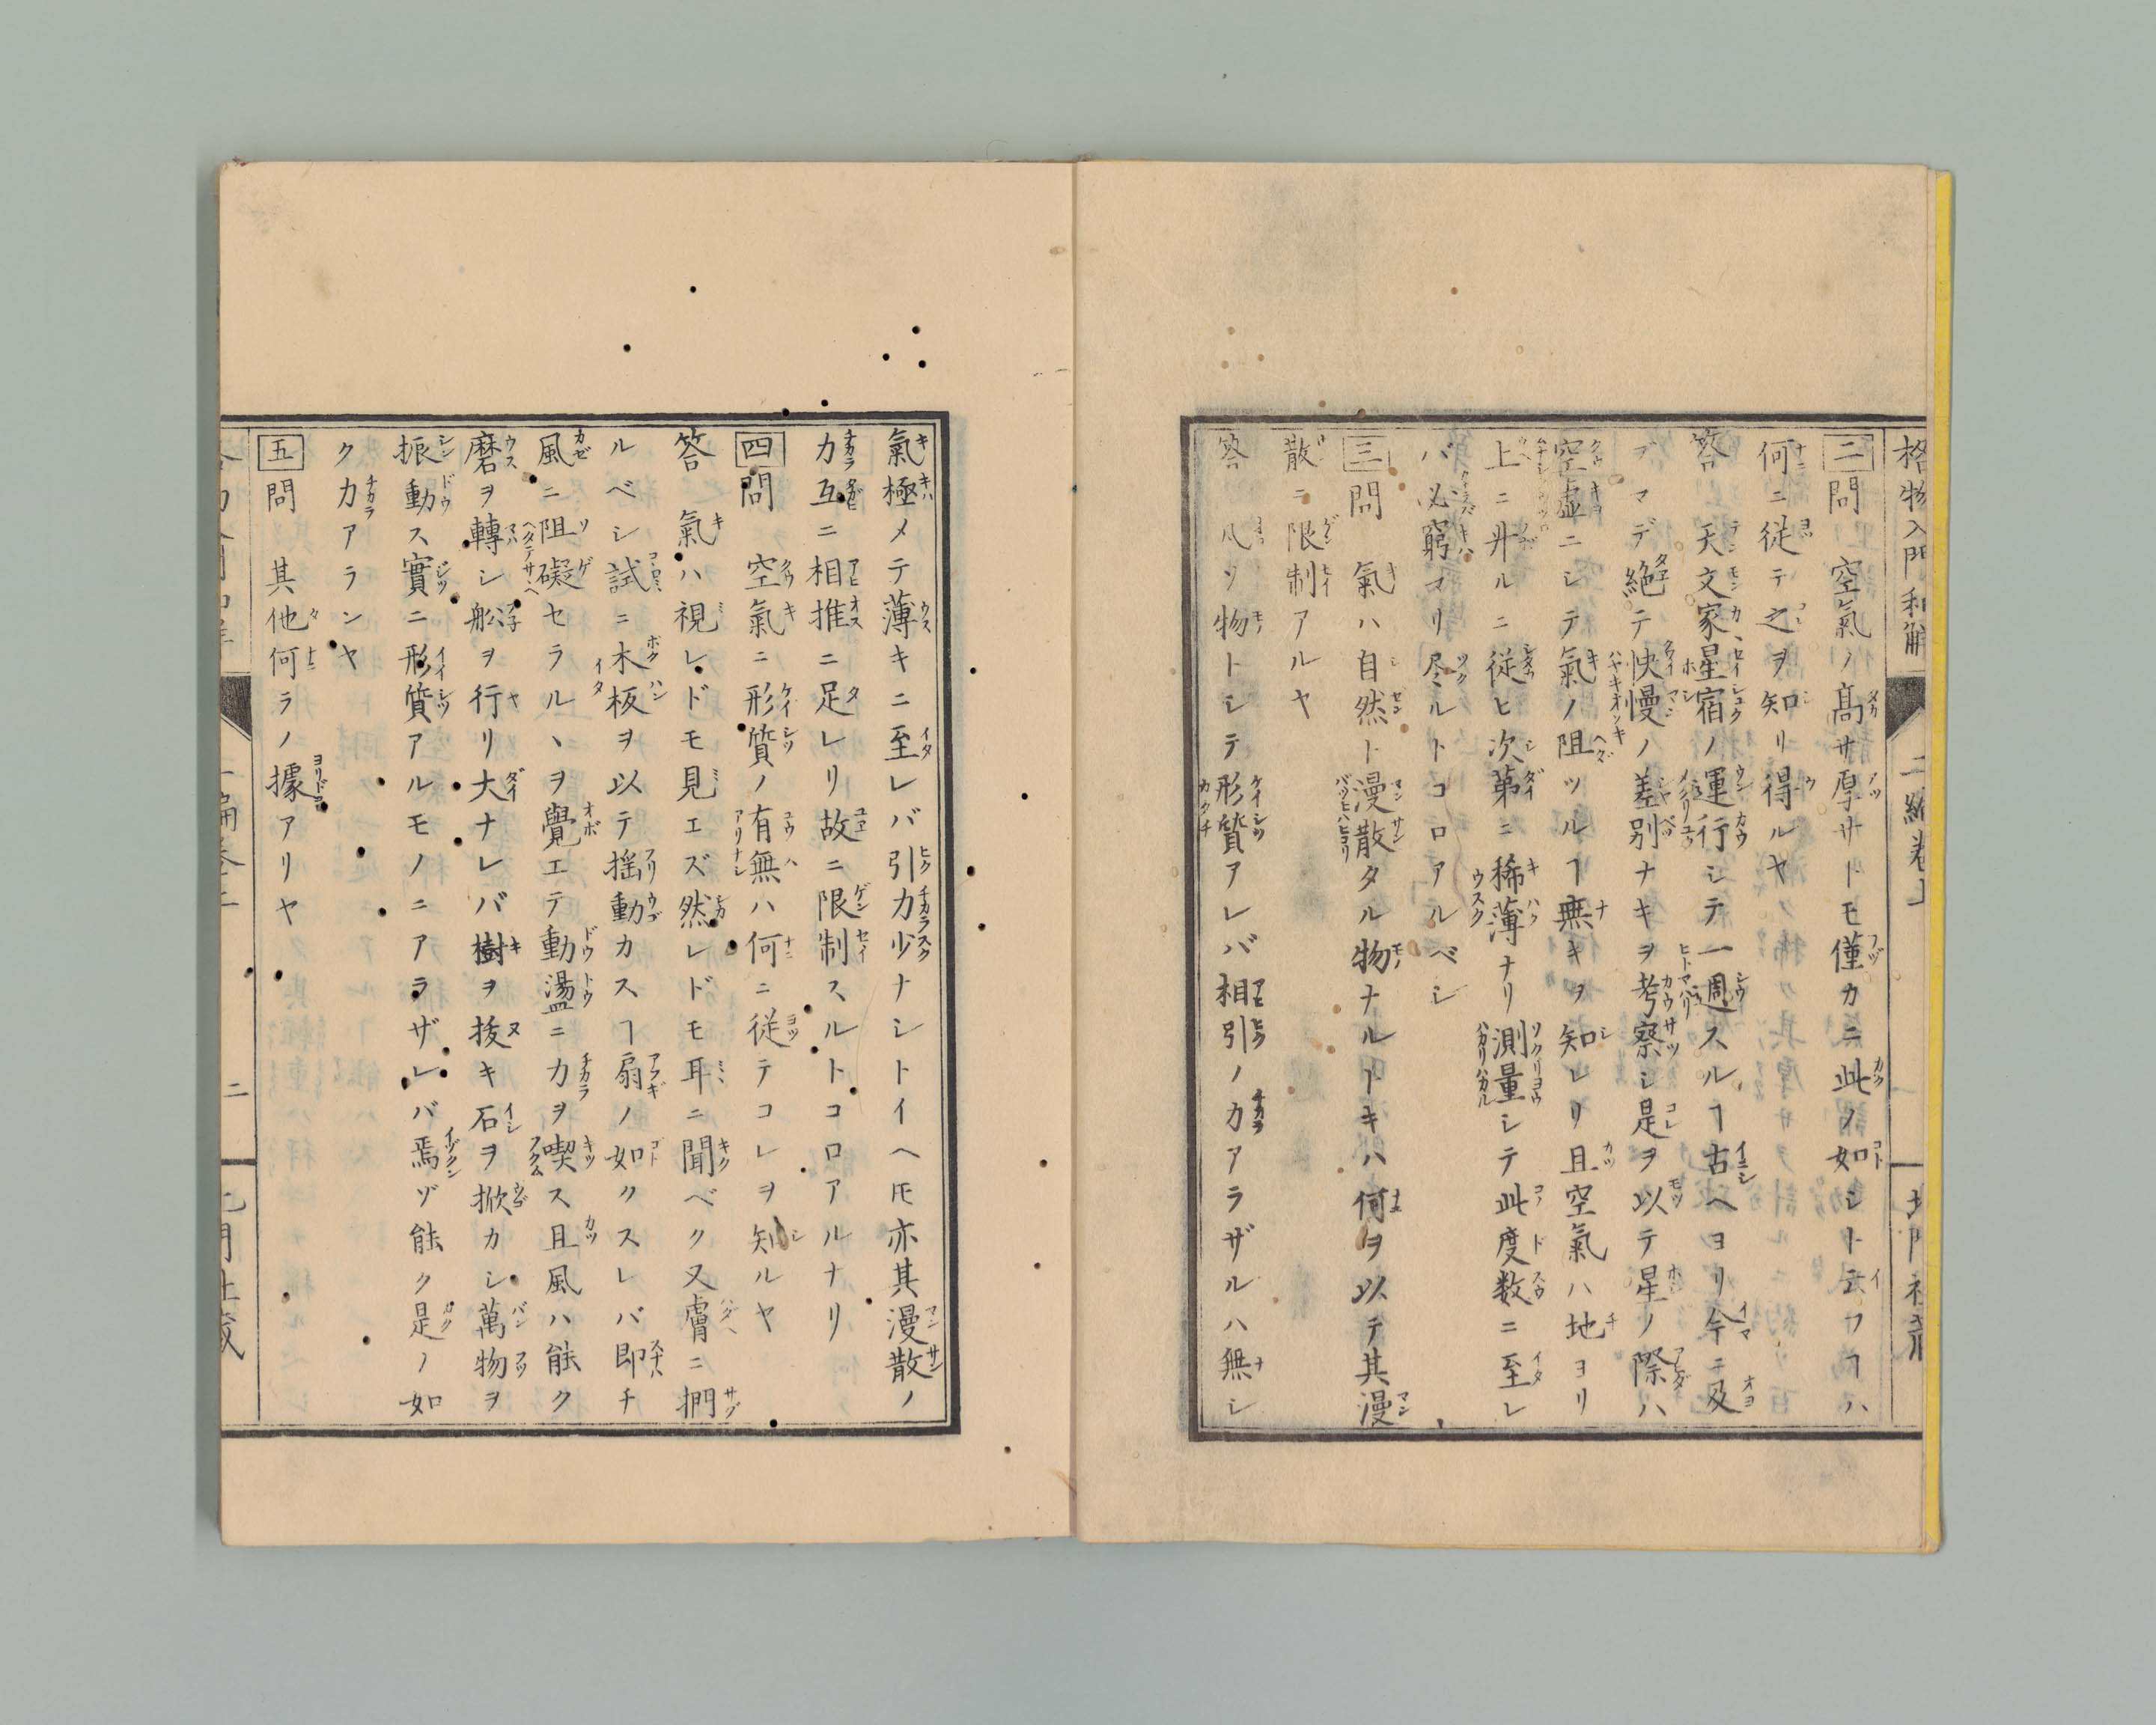 格物入門和解
二編巻上
北門社蔵
二問　空氣ノ髙サ厚サトモ僅カニ此ノ如シト云フヿハ
何ニ従テ之ヲ知リ得ルヤ
答　天文家星宿ノ運行シテ一週スルヿ古ヘヨリ今ニ及
ブマデ絶テ快慢ノ差別ナキヲ考察シ是ヲ以テ星ノ際ハ
空虚ニシテ氣ノ阻ツルヿ無キヲ知レリ且空氣ハ地ヨリ
上ニ升ルニ従ヒ次第ニ稀薄ナリ測量シテ此度数ニ至レ
バ必窮マリ尽ルトコロアルベシ
三問　氣ハ自然ト漫散タル物ナルトキハ何ヲ以テ其漫
散ニ限制アルヤ
答　凡ソ物トシテ形質アレバ相引ノ力アラザルハ無シ
氣極メテ薄キニ至レバ引力少ナシトイヘ𪜈亦其漫散ノ
力互ニ相推ニ足レリ故ニ限制スルトコロアルナリ
四問　空氣ニ形質ノ有無ハ何ニ従テコレヲ知ルヤ
答　氣ハ視レドモ見エズ然レドモ耳ニ聞ベク又膚ニ捫
ルベシ試ニ木板ヲ以テ揺動カスヿ扇ノ如クスレバ即チ
風ニ阻礙セラルヽヲ覺エテ動盪ニ力ヲ喫ス且風ハ能ク
磨ヲ轉シ舩ヲ行リ大ナレバ樹ヲ抜キ石ヲ掀カシ萬物ヲ
振動ス實ニ形質アルモノニアラザレバ焉ゾ能ク是ノ如
ク力アランヤ
五問　其他何ラノ據アリヤ
二